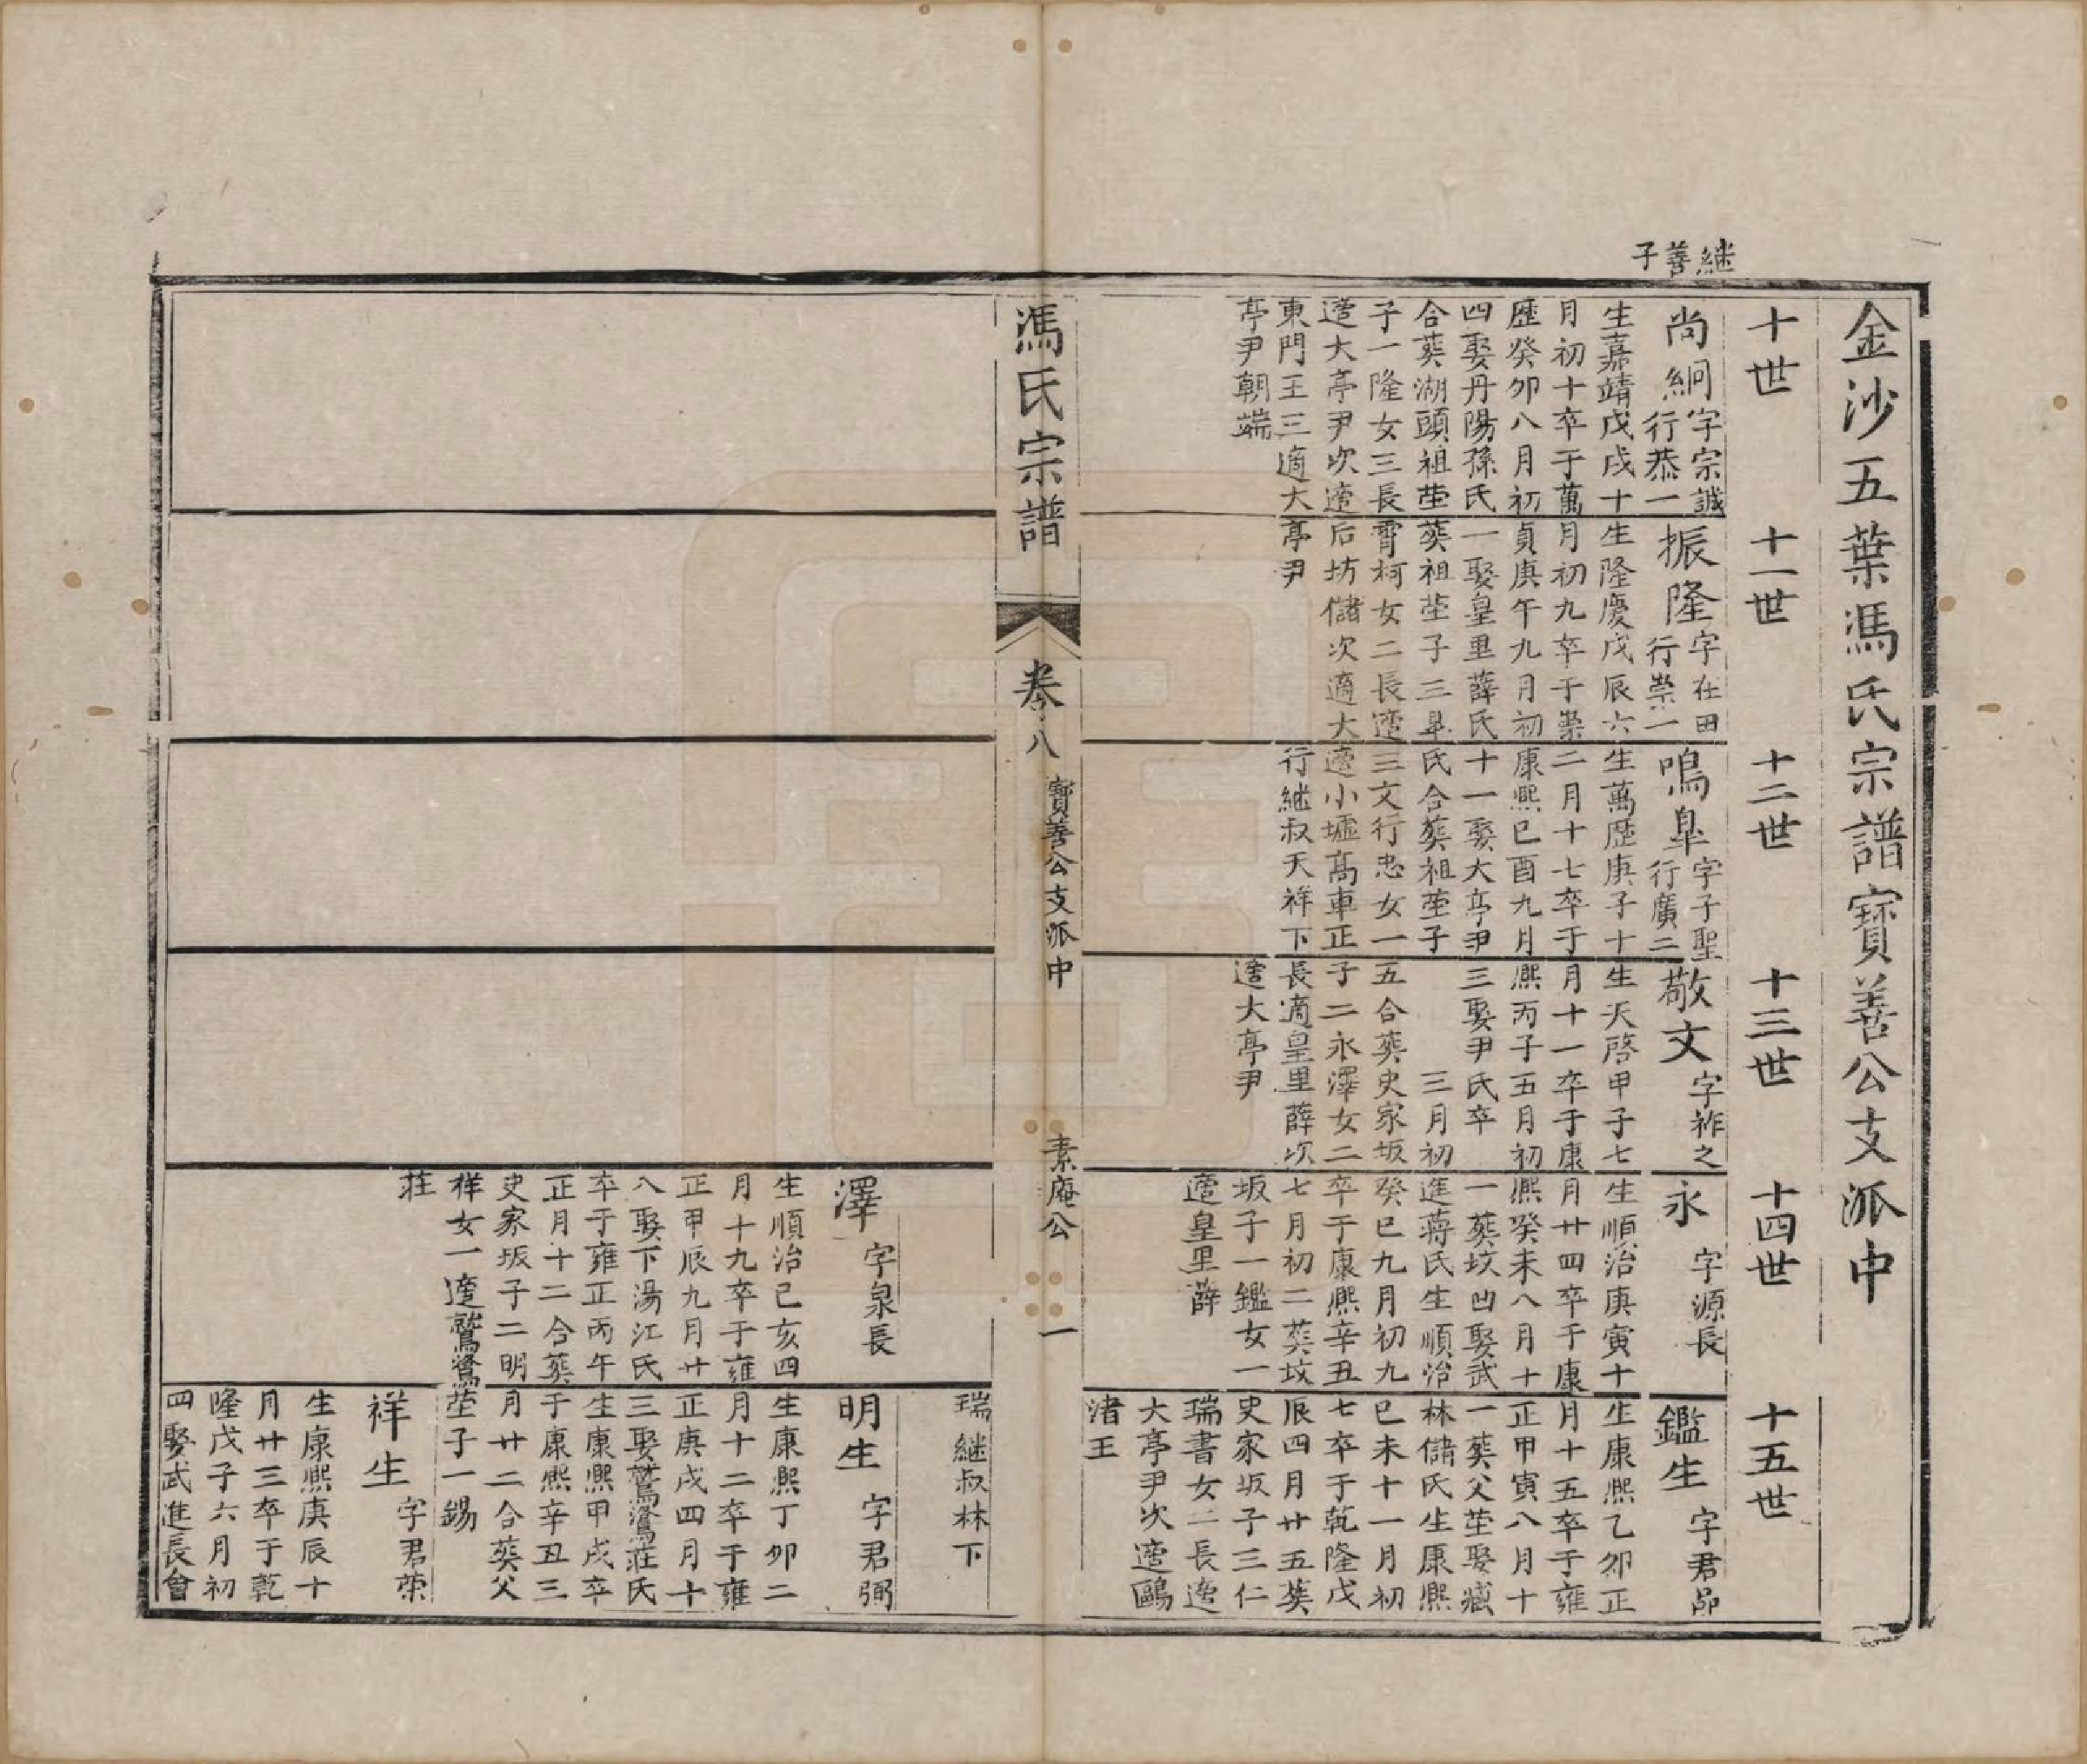 金沙五葉馮氏宗譜寶善公支派中
十世
十一世
十二世
十三世
十四世
十五世
継善子
尚絅
字宗誠
行恭一
生嘉靖戊戌十
月初十卒于萬
歷癸卯八月初
四娶丹陽孫氏
合葬湖頭祖塋
子一隆女三長
適大亭尹次適
東門王三適大
亭尹朝端
振隆
字在田
行崇一
生隆慶戊辰六
月初九卒于崇
貞庚午九月初
一娶皇里薛氏
葬祖塋子三臯
霄柯女二長適
后坊儲次適大
亭尹
鳴臯
字子聖
行廣二
生萬歷庚子十
二月十七卒于
康熙已酉九月
十一娶大亭尹
氏合葬祖塋子
三文行忠女一
適小墟高車正
行継叔天祥下
敬文
字祚之
生天啓甲子七
月十一卒于康
熙丙子五月初
三娶尹氏卒
三月初
五合葬史家坂
子二永澤女二
長適皇里薛次
適大亭尹
永
字源長
生順治庚寅十
月廿四卒于康
熙癸未八月十
一葬坟凹娶武
進蔣氏生順治
癸巳九月初九
卒于康熙辛丑
七月初二葬坟
坂子一鑑女一
適皇里薛
鑑生
字君昂
生康熙乙卯正
月十五卒于雍
正甲寅八月十
一葬父塋娶臧
林儲氏生康熙
已未十一月初
七卒于乾隆戊
辰四月廿五葬
史家坂子三仁
瑞書女二長適
大亭尹次適鷗
渚王
馮氏宗譜
卷八
寶善公支派中
素庵公
一
瑞継叔林下
澤
字泉長
生順治已亥四
月十九卒于雍
正甲辰九月廿
八娶下湯江氏
卒于雍正丙午
正月十二合葬
史家坂子二明
祥女一適鷲鷺
莊
明生
字君弼
生康熙丁卯二
月十二卒于雍
正庚戌四月十
三娶鷲鷺莊氏
生康熙甲戌卒
于康熙辛丑三
月廿二合葬父
塋子一錫
祥生
字君榮
生康熙庚辰十
月廿三卒于乾
隆戊子六月初
四娶武進長會